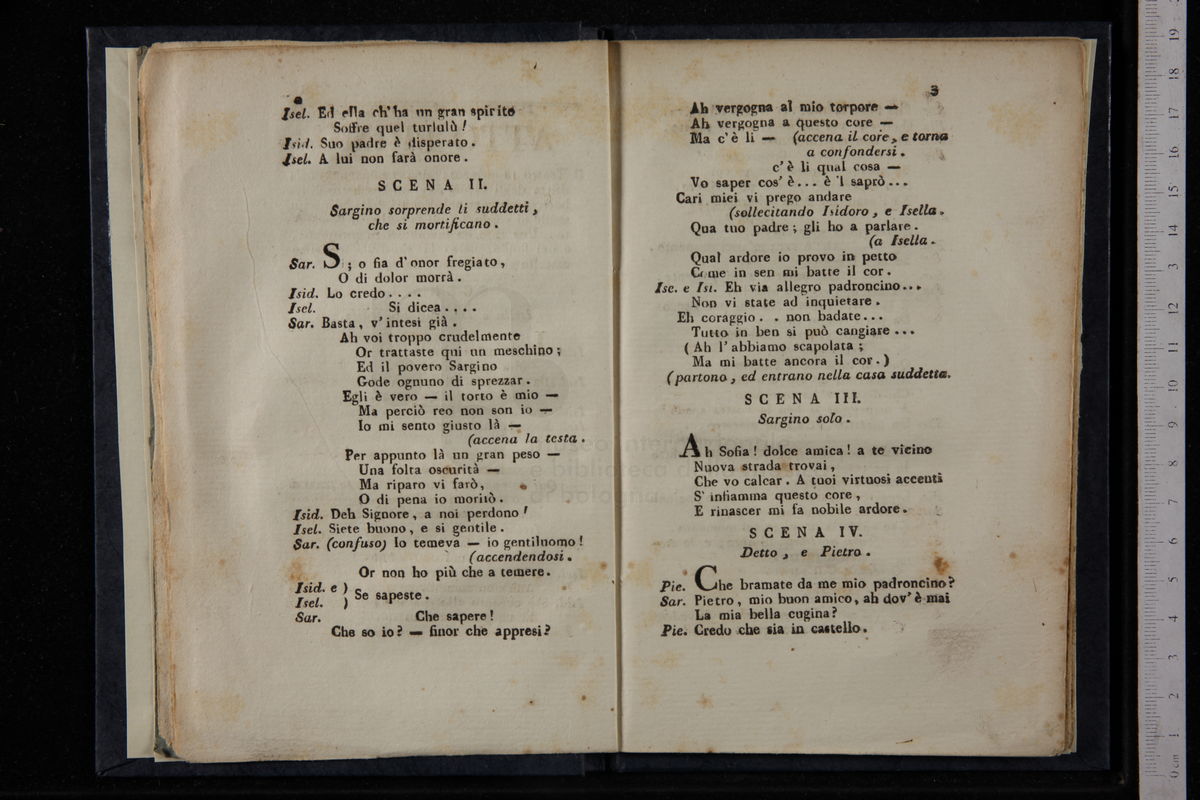 Isel. Ed ella ch'ha un gran spirito
Soffre quel turlulù!
Isid. Suo padre è disperato.
Isel. A lui non farà onore.
SCENA II.
Sargino sorprende li suddetti,
che si mortificano.
Sar. Sì; o sia d'onor fregiato,
O di dolor morrà.
Isid. Lo credo....
Isel. Si dicea....
Sar. Basta, v'intesi già.
Ah voi troppo crudelmente
Or trattaste qui un meschino;
Ed il povero Sargino
Gode ognuno di sprezzar.
Egli è vero — il torto è mio —
Ma perciò reo non son io —
Io mi sento giusto là —
(accena la testa.
Per appunto là un gran peso —
Una folta oscurità —
Ma riparo vi farò,
O di pena io morirò.
Isid. Deh Signore, a noi perdono!
Isel. Siete buono, e si gentile.
Sar. (confuso) Io temeva — io gentiluomo!
(accendendosi.
Or non ho più che a temere.
Isid. e )
Isel. ) Se sapeste.
Sar. Che sapere!
Che so io? — finor che appresi?
3
Ah vergogna al mio torpore —
Ah vergogna a questo core —
Ma c'è lì — (accena il core, e torna
a confondersi.
c'è lì qual cosa —
Vo saper cos'è... è 'l saprò...
Cari miei vi prego andare
(sollecitando Isidoro, e Isella.
Qua tuo padre; gli ho a parlare.
(a Isella.
Qual ardore io provo in petto
Come in sen mi batte il cor.
Ise. e Isi. Eh via allegro padroncino...
Non vi state ad inquietare.
Eh coraggio.. non badate...
Tutto in ben si può cangiare...
(Ah l'abbiamo scapolata;
Ma mi batte ancora il cor.)
(partono, ed entrano nella casa suddetta.
SCENA III.
Sargino solo.
Ah Sofia! dolce amica! a te vicino
Nuova strada trovai,
Che vo calcar. A tuoi virtuosi accenti
S'infiamma questo core,
E rinascer mi fa nobile ardore.
SCENA IV.
Detto, e Pietro.
Pie. Che bramate da me mio padroncino?
Sar. Pietro, mio buon amico, ah dov'è mai
La mia bella cugina?
Pie. Credo che sia in castello.
0 cm 1 2 3 4 5 6 7 8 9 10 11 12 13 14 15 16 17 18 19